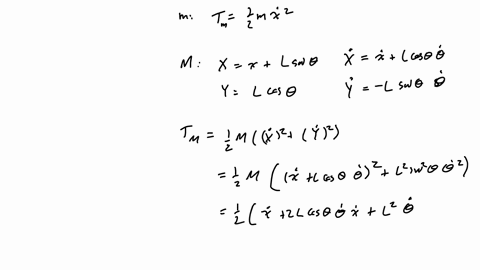 m: T_m = 1/2 m ẋ²
M: X = x + L sin θ   Ẋ = ẋ + L cos θ θ̇
Y = L cos θ   Ẏ = -L sin θ θ̇
T_M = 1/2 M ((Ẋ)² + (Ẏ)²)
= 1/2 M ((ẋ + L cos θ θ̇)² + L² sin² θ θ̇²)
= 1/2 (ẋ + 2L cos θ θ̇ ẋ + L² θ̇